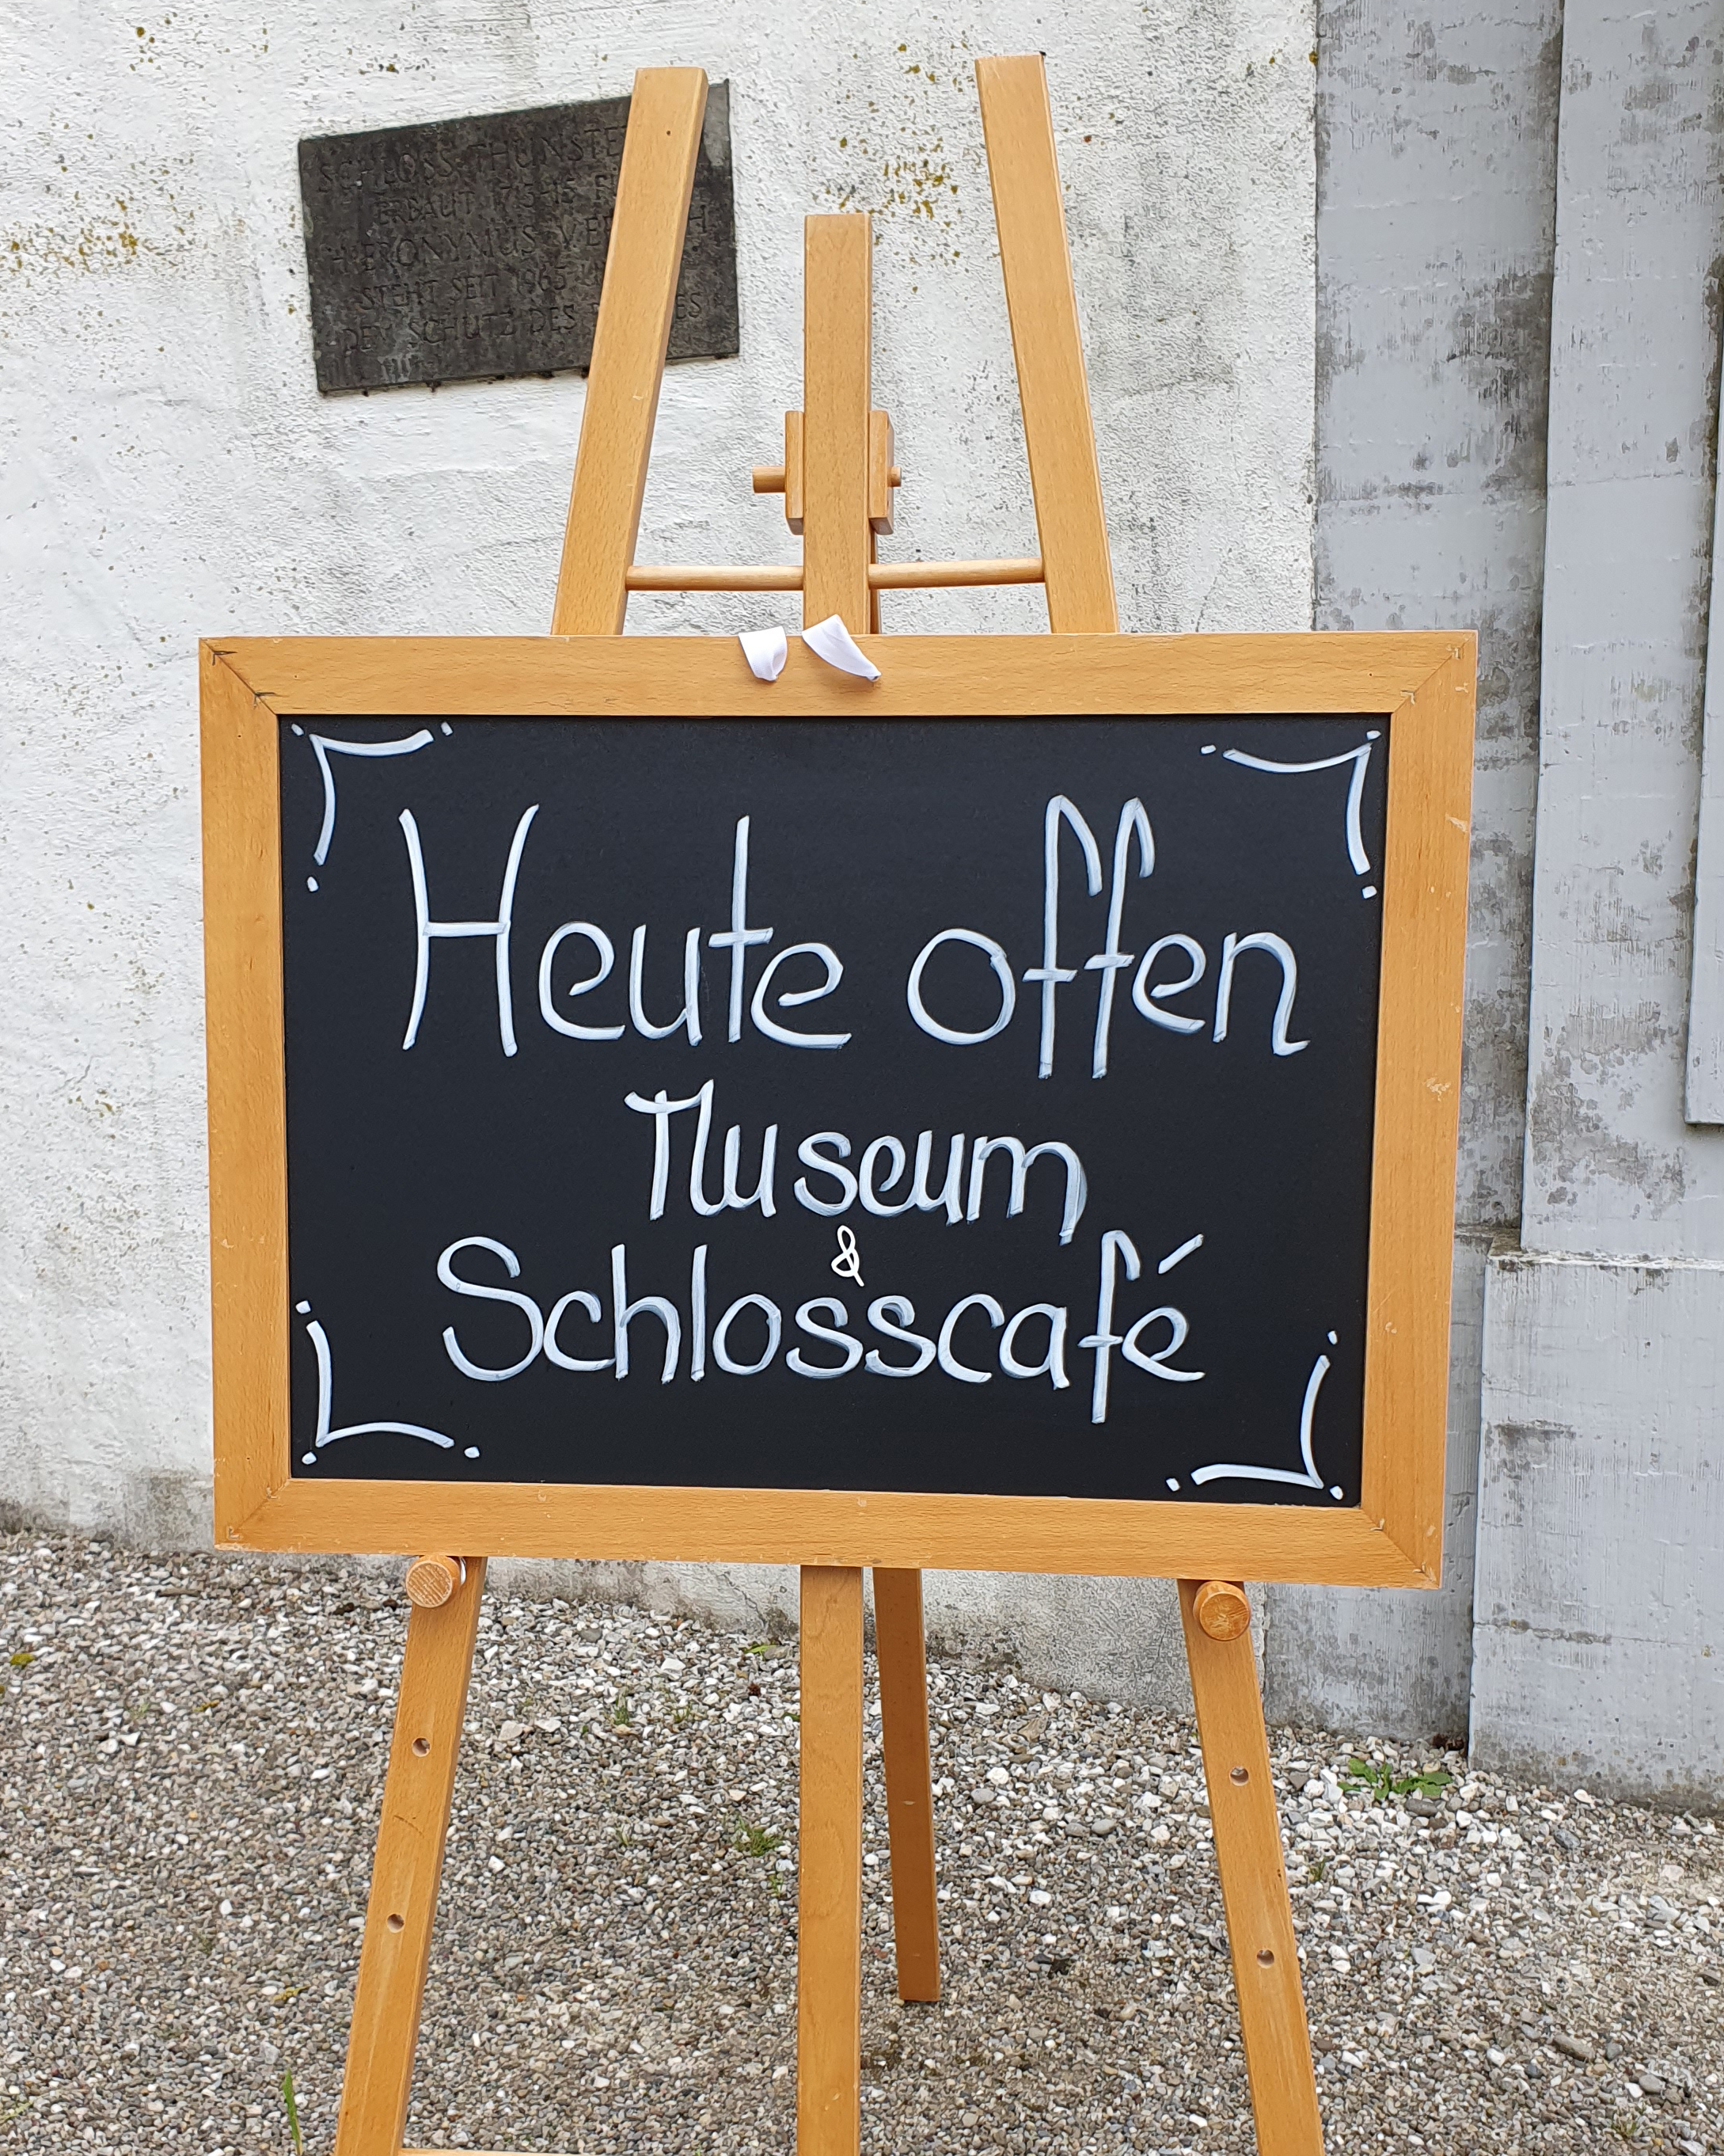 SCHLOSS THUNSTE
ERBAUT 1713-15 FÜ
HIERONYMUS
STEHT SEIT 1965
DEM SCHUTZ DES
Heute offen
Museum
&
Schlosscafé